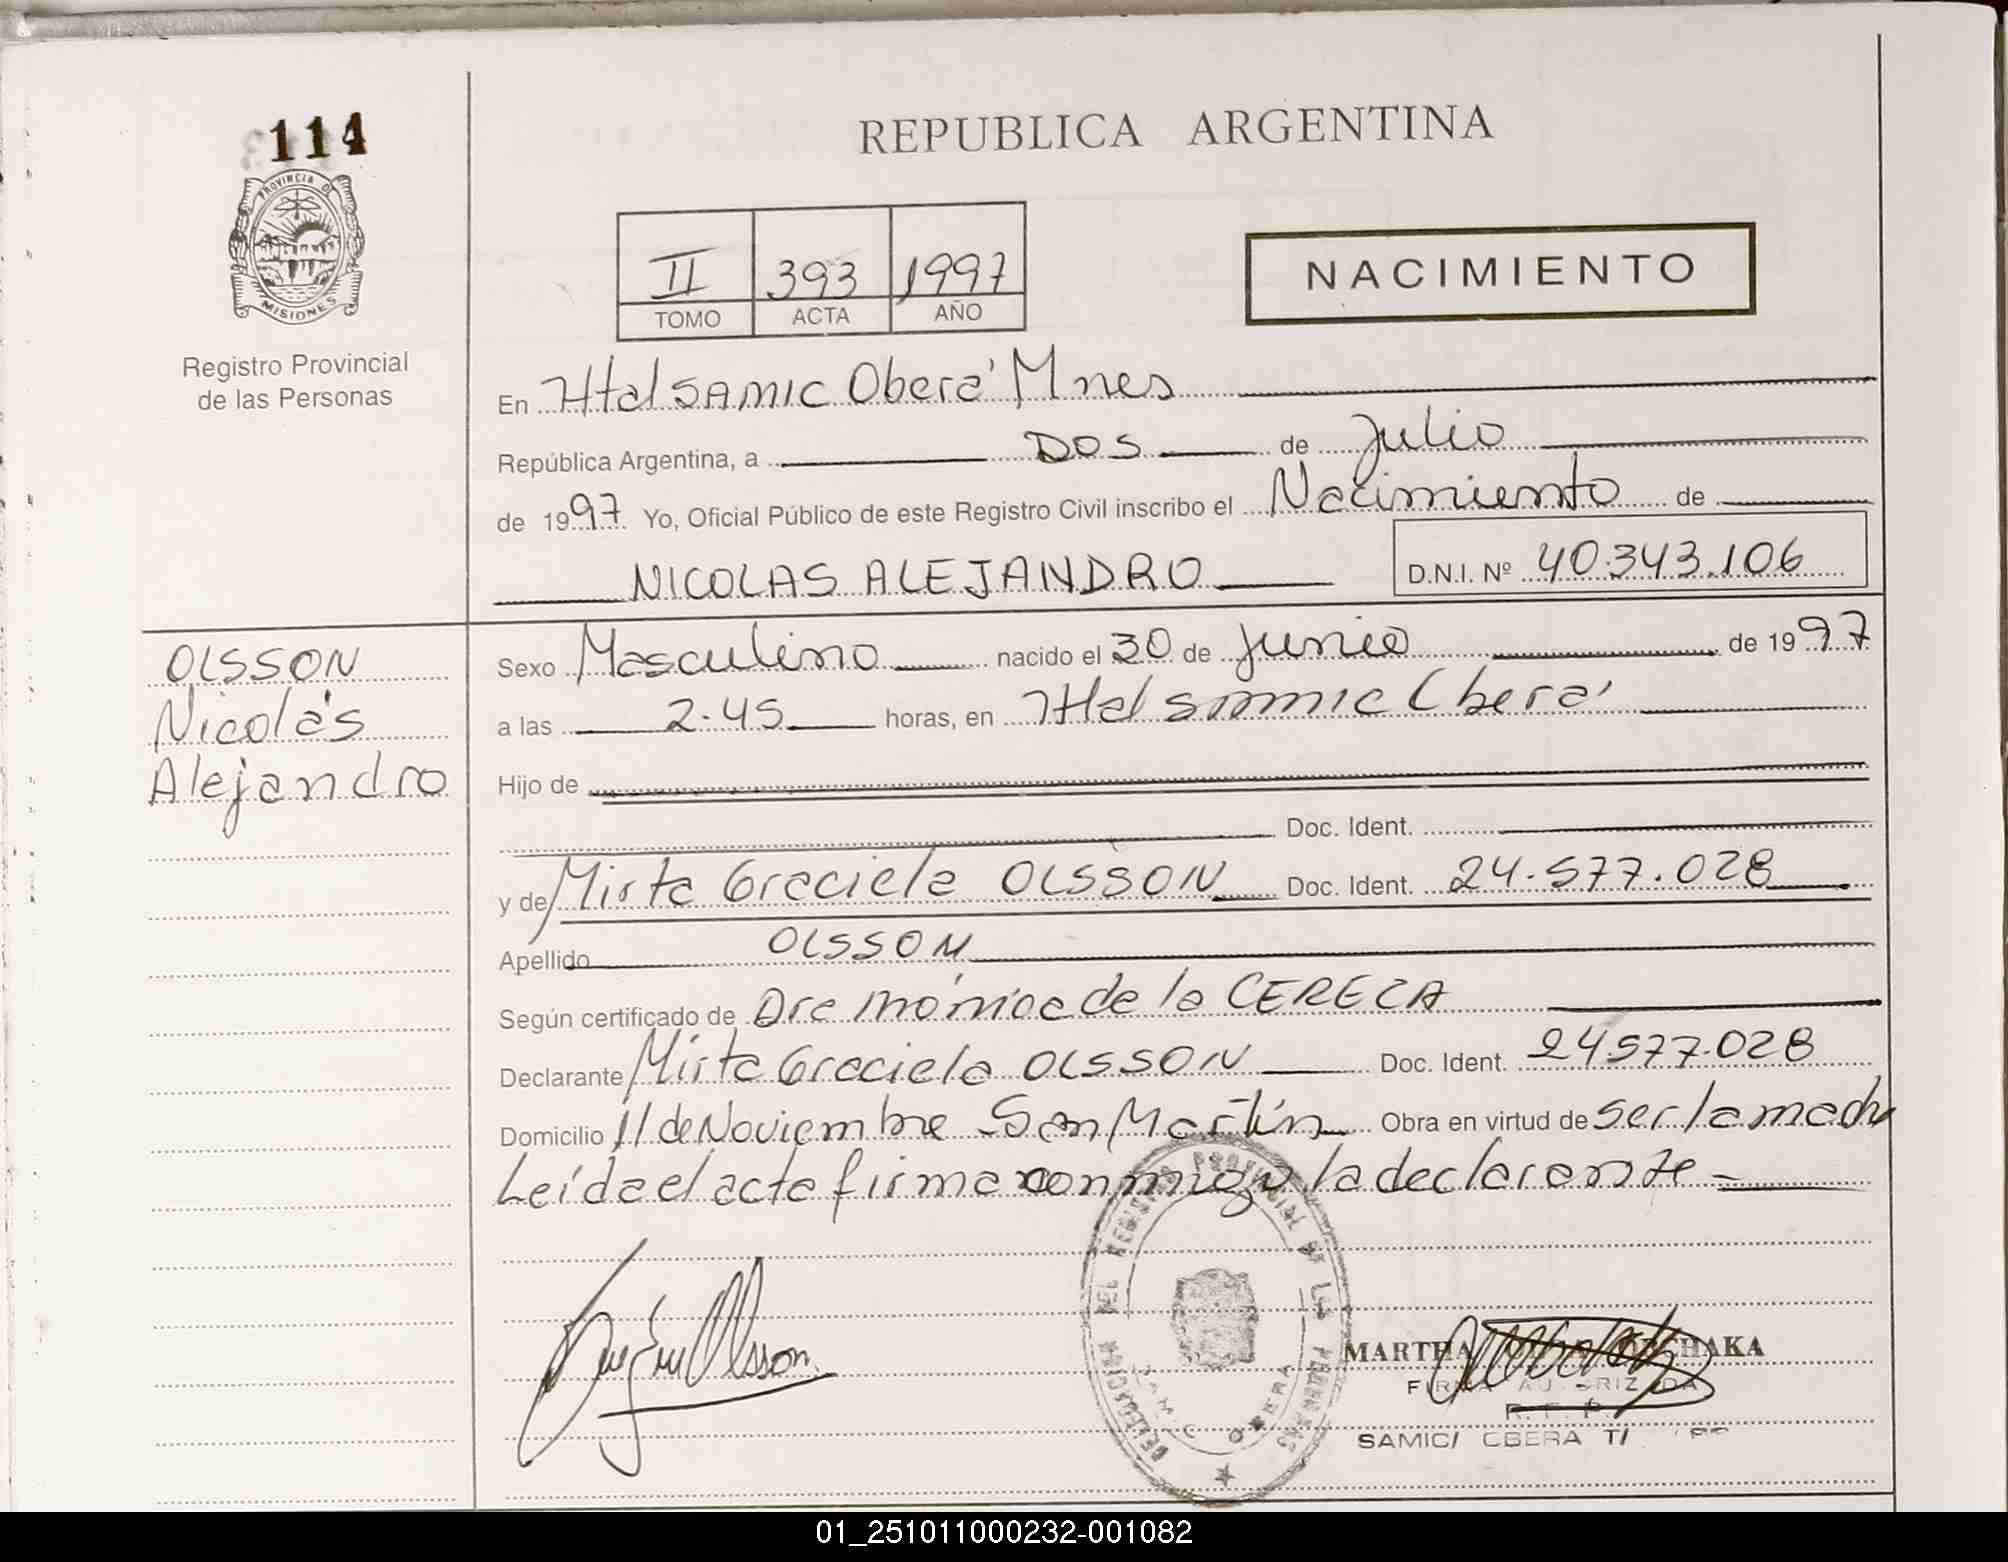 114
PROVINCIA DE
MISIONES
Registro Provincial
de las Personas
REPUBLICA ARGENTINA
II 393 1997
TOMO ACTA AÑO
NACIMIENTO
En Htal SAMIC Oberá Mnes
República Argentina, a DOS de Julio
de 1997 Yo, Oficial Público de este Registro Civil inscribo el Nacimiento de
NICOLAS ALEJANDRO D.N.I. Nº 40.343.106
OLSSON
Nicolás
Alejandro
Sexo Masculino nacido el 30 de Junio de 1997
a las 2.45 horas, en Htal Samic Oberá
Hijo de
Doc. Ident.
y de Mirta Graciela OLSSON Doc. Ident. 24.577.028
Apellido OLSSON
Según certificado de Dra Mónica de la CERECA
Declarante Mirta Graciela OLSSON Doc. Ident. 24577.028
Domicilio 11 de Noviembre San Martín Obra en virtud de ser la madre
Leída el acta firma conmigo la declarante
DELEGACION DEL REGISTRO PROVINCIAL DE LAS PERSONAS
SAMIC OBERA
Olsson
MARTHA
FIRMA AUTORIZADA
R. P. P.
SAMIC/ OBERA
01_251011000232-001082